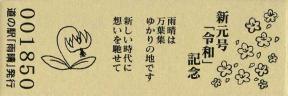 新元号
「令和」
記念
雨晴は
万葉集
ゆかりの地です
新しい時代に
想いを馳せて
001850
道の駅「雨晴」発行